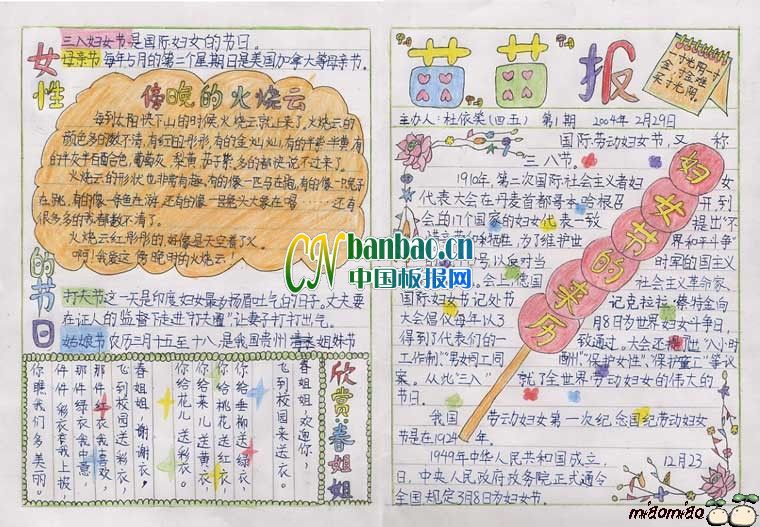 三八妇女节是国际妇女的节日。
母亲节每年5月的第二个星期日是美国加拿大等母亲节。
女性的节日
傍晚的火烧云
每到太阳快下山的时候火烧云就上来了。火烧云的
颜色多的数不清,有红的彤彤,有的金灿灿,有的半紫半黄,有
的半灰半百合色,葡萄灰、梨黄、茄子紫,多的都快说不过来了。
火烧云的形状也非常有趣,有的像一匹马在跑,有的像一只兔子
在跳,有的像一条鱼在游,还有的像一只
很多多的我都数不清了。
火烧云红彤彤的,好像是天空着了火。
啊!我爱这傍晚时的火烧云!
打夫节这一天是印度妇女最多扬眉吐气的日子。丈夫要
在证人的监督下走进"打夫圈"让妻子打打出气。
姑娘节农历二月十五至十八,是我国贵州 姐妹节
欣赏·春姐姐
春姐姐,欢迎你,
飞到校园来送衣。
你给垂柳送绿衣,
你给桃花送红衣,
你给菜儿送黄衣,
你给花儿送彩衣。
春姐姐,谢谢衣,
飞到校园送彩衣,
那件红衣我喜欢,
那件绿衣我中意,
件件彩衣套我上披,
你瞧我们多美丽。
苗苗报
一寸光阴一寸
金,寸金难
买寸光阴。
主办人:杜依笑(四五) 第1期 2004年2月29日
妇女节的来历
国际劳动妇女节,又称
三八节。
1910年,第二次国际社会主义者妇女
代表大会在丹麦首都哥本哈根召开,到
会的17个国家的妇女代表一致提出"不
为了维护世界和平斗争"
号以反对当时军的国主义
会上,德国社会主义革命家
国际妇女节书记处书记克拉拉·蔡特金向
大会倡仪每年以3月8日为世界妇女斗争日
得到了代表们的一致通过。大会还提出"八小时
工作制","男女同工同酬","保护女性","保护童工"等议
案。从此"三八"就了全世界劳动妇女的伟大的
节日。
我国劳动妇女第一次纪念国纪劳动妇女
节是在1924年。
1949年中华人民共和国成立,12月23
日,中央人民政府政务院正式通令
全国规定3月8日为妇女节。
CN banbao.cn
中国板报网
miaomiao